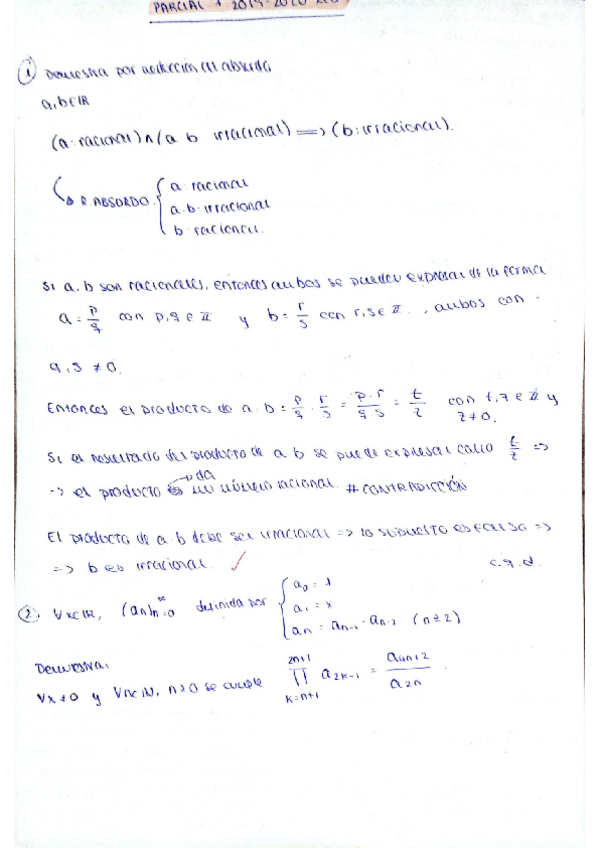 PARCIAL 1 2019-2020
① Demuestra por reducción al absurdo
a, b ∈ ℝ
(a racional) ∧ (a·b irracional) ⟹ (b irracional).
R. ABSURDO { a racional
a·b irracional
b racional.
Si a, b son racionales, entonces ambos se pueden expresar de la forma
a = p/q con p, q ∈ ℤ y b = r/s con r, s ∈ ℤ, ambos con
q, s ≠ 0.
Entonces el producto de a·b = p/q · r/s = p·r/q·s = t/z con t, z ∈ ℤ y
z ≠ 0.
Si el resultado del producto de a b se puede expresar como t/z ⇒
⇒ el producto da un número racional. #CONTRADICCIÓN
El producto de a·b debe ser irracional ⇒ lo supuesto es falso ⇒
⇒ b es irracional. ✓ c.q.d.
② ∀x∈ℝ, (an)∞n=0 definida por { a0 = 1
a1 = x
an = an-1 · an-2 (n ≥ 2)
Demuestra:
∀x ≠ 0 y ∀n∈ℕ, n>0 se cumple ∏ (k=n+1, 2n+1) a2k-1 = a4n+2 / a2n.